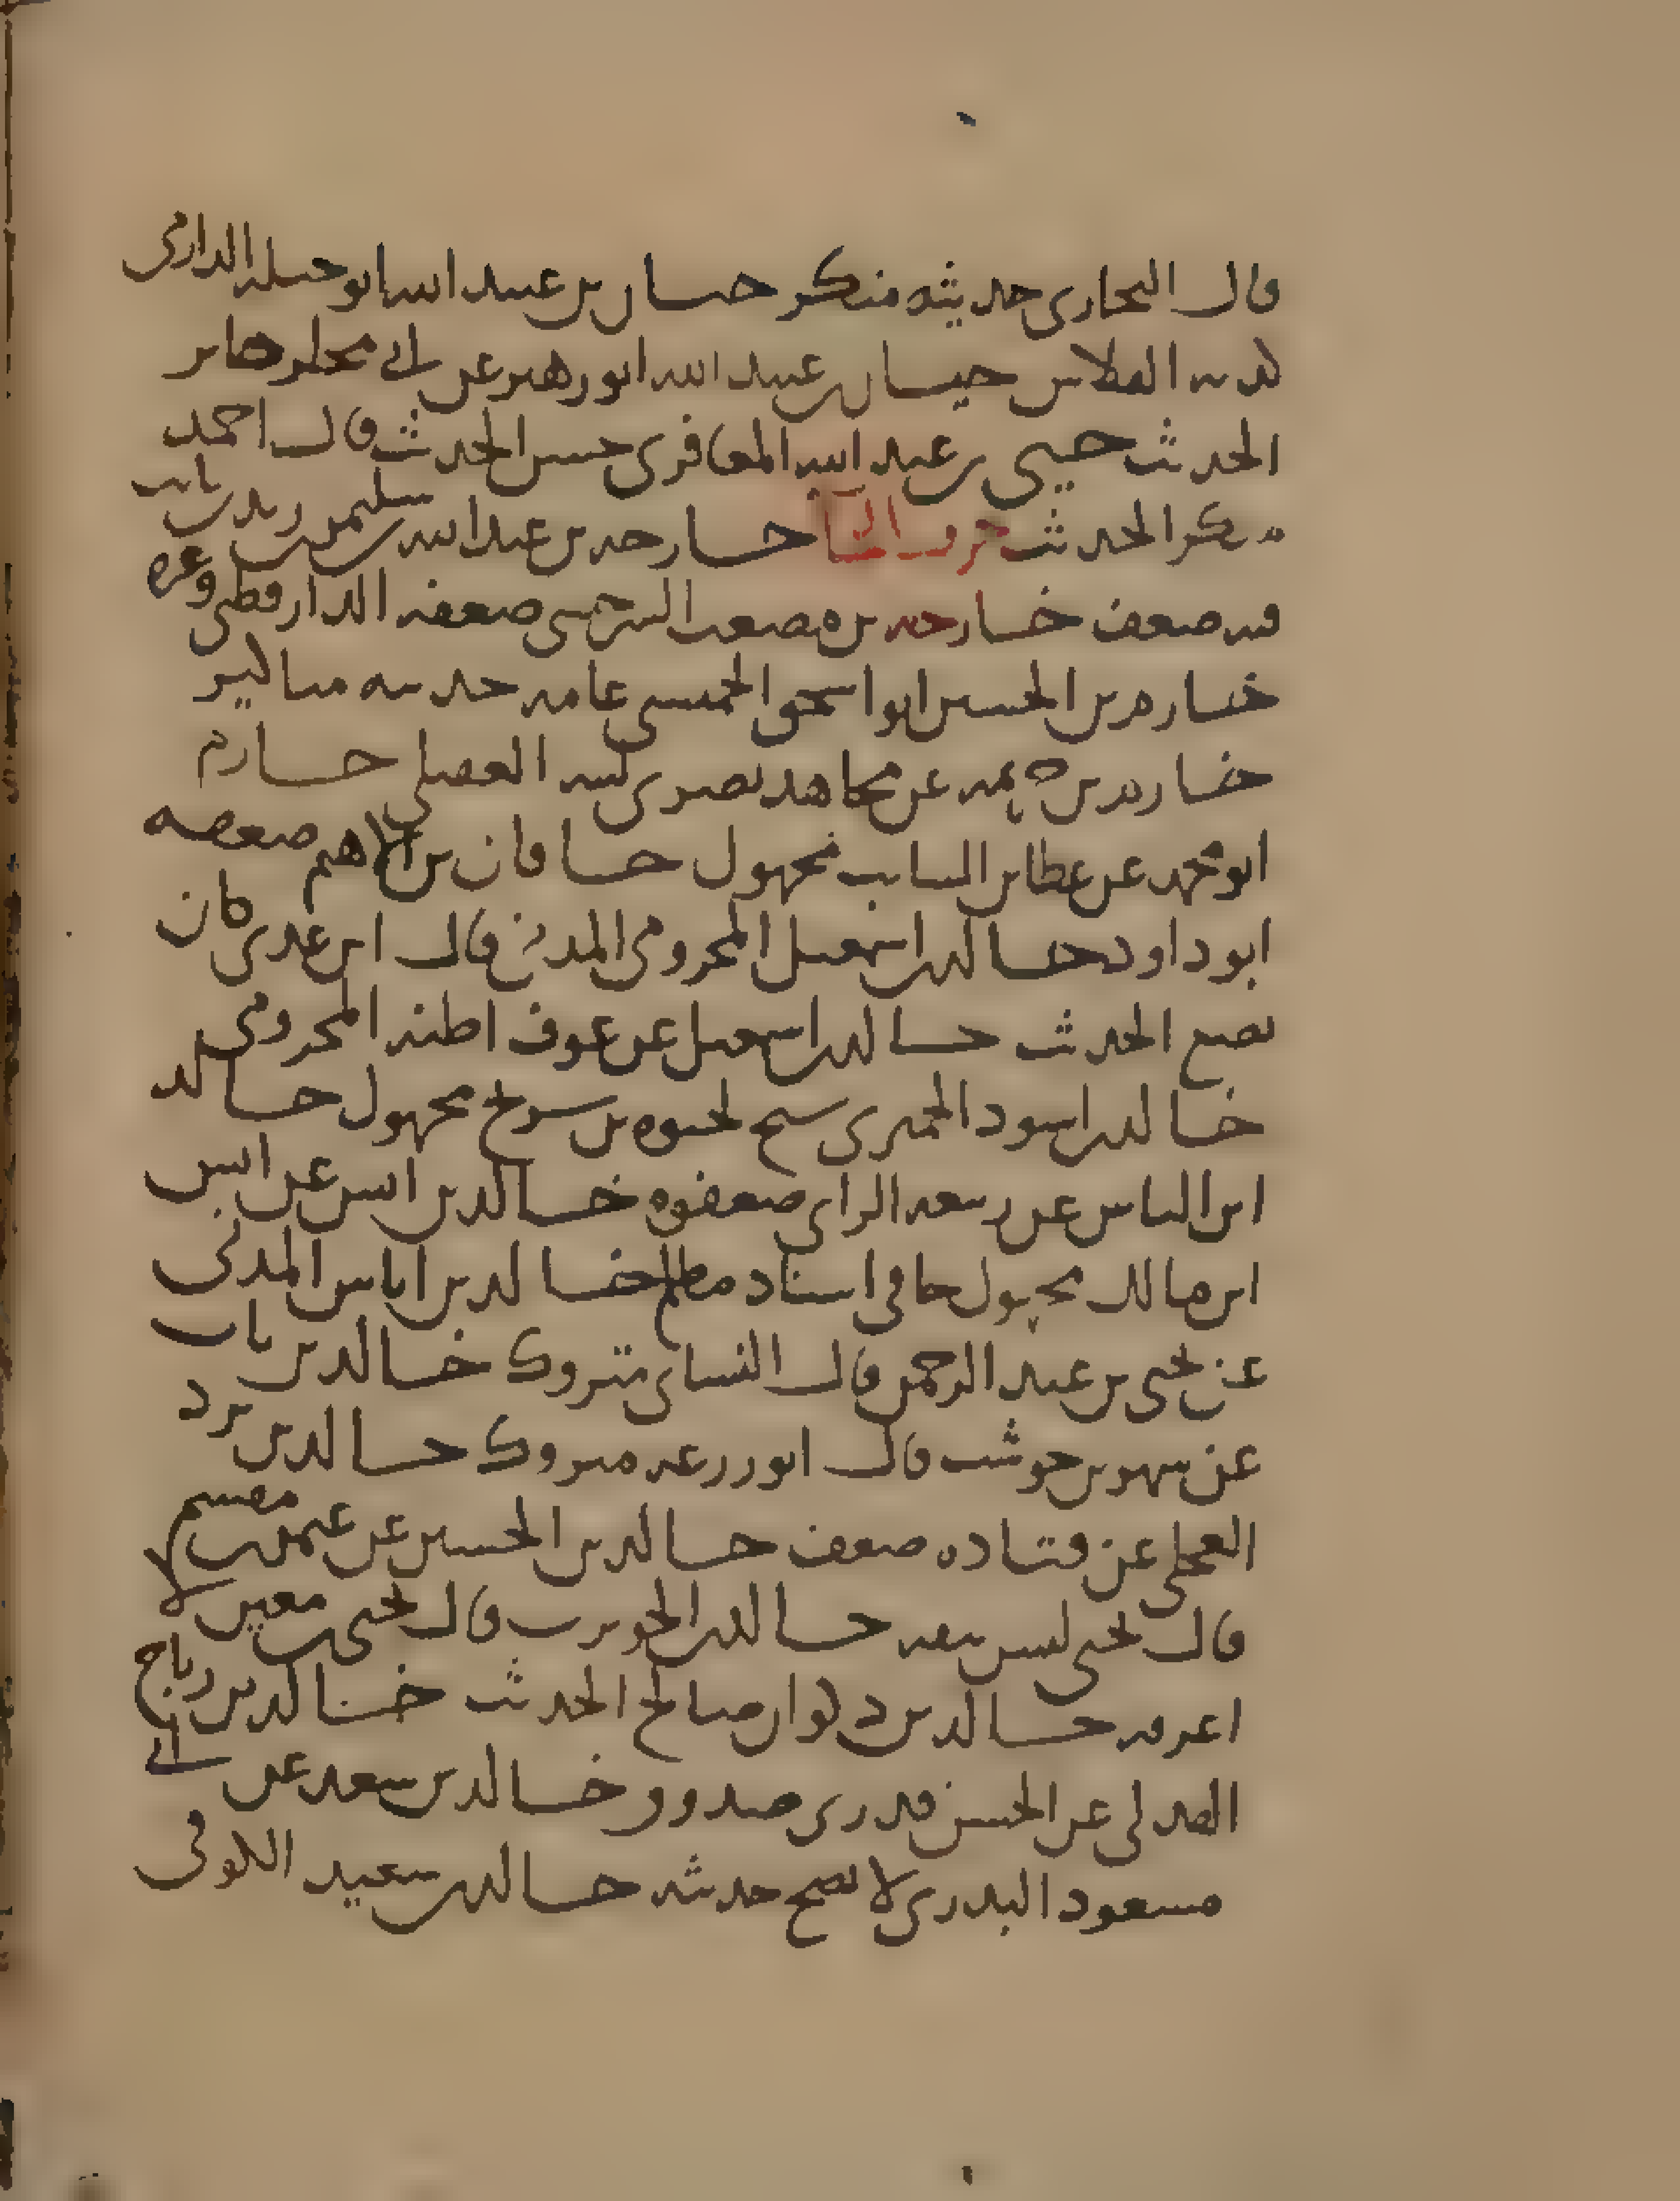 قال البخارى حديثه منكر حيان بن عبيد الله ابو جبلة الدارمى
كذبه الفلاس حيان بن عبيد الله ابو زهير عن ابى مجلز جابر
الحديث حيى بن عبد الله المعافرى حسن الحديث قال احمد
منكر الحديث حرف الخا خارجه بن عبد الله بن سليمن بن زيد بن ثابت
فيه ضعف خارجه بن مصعب السرخسى ضعفه الدارقطنى وغيره
خازم بن الحسين ابو اسحق الحميسى عامه حديثه مناكير
خازم بن خزيمه عن مجاهد بصرى لينه العقيلى خازم
ابو محمد عن عطا بن السايب مجهول خاقان بن الاهتم ضعفه
ابو داود خالد بن اسمعيل المخزومى المدنى قال ابن عدى كان
يضع الحديث خالد بن اسمعيل عن عوف اظنه المخزومى
خالد بن اسود الحميرى شيخ لحيوه بن شريح مجهول خالد
ابن الياس عن ربيعه الراى ضعفوه خالد بن انس عن انس
ابن مالك مجهول جا فى اسناد مظلم خالد بن اياس المدنى
عن يحيى بن عبد الرحمن قال النساى متروك خالد بن باب
عن شهر بن حوشب قال ابو زرعه متروك خالد بن برد
العجلى عن قتاده ضعف خالد بن الحسين عن عثمن بن مقسم
قال يحيى ليس بثقه خالد بن الحويرث قال يحيى بن معين لا
اعرفه خالد بن ذكوان صالح الحديث خالد بن رباح
الهذلى عن الحسن قدرى صدوق خالد بن سعد عن ابى
مسعود البدرى لا يصح حديثه خالد بن سعيد الكوفى